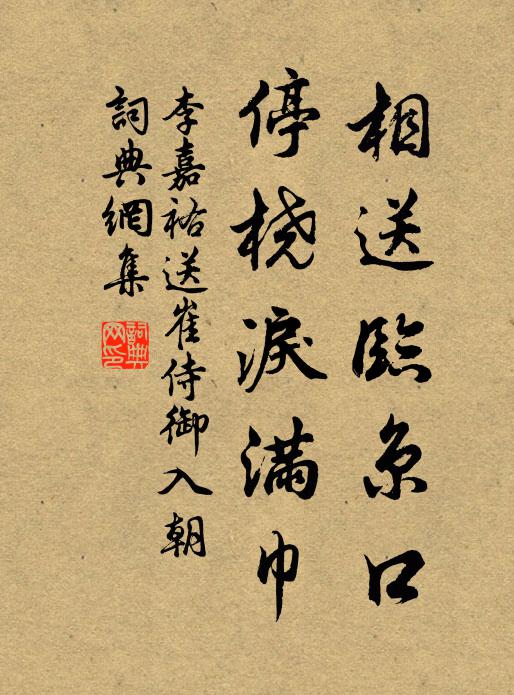 相送臨京口
停橈淚滿巾
李嘉祐送崔侍御入朝
詞典網集
詞典
网印